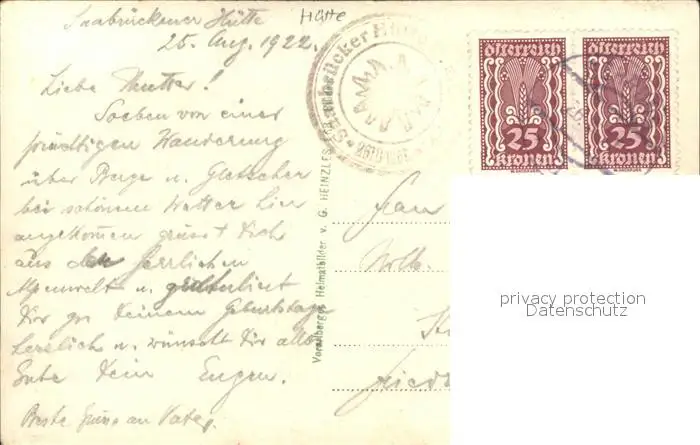 Saarbrückener Hütte
Hütte
25. Aug. 1922.
Liebe Mutter!
Soeben von einer
prächtigen Wanderung
über Berge u. Gletscher
bei schönem Wetter hier
angekommen grüsst Dich
aus der herrlichen
Alpenwelt u. gratuliert
Dir zu Deinem Geburtstage
herzlich u. wünscht Dir alles
Gute Dein Eugen.
Beste Grüsse an Vater.
Vorarlberger Heimatbilder v. G. HEINZLE
Saarbrücker Hütte
österreich
25
kronen
österreich
25
kronen
Frau
privacy protection
Datenschutz